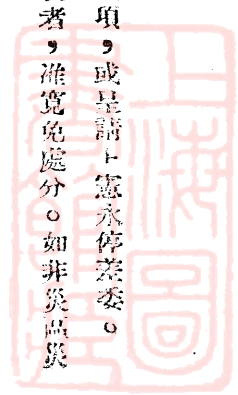 項，或呈請上憲永停差委。
者，准寬免處分。如非災區災
上海圖書館藏